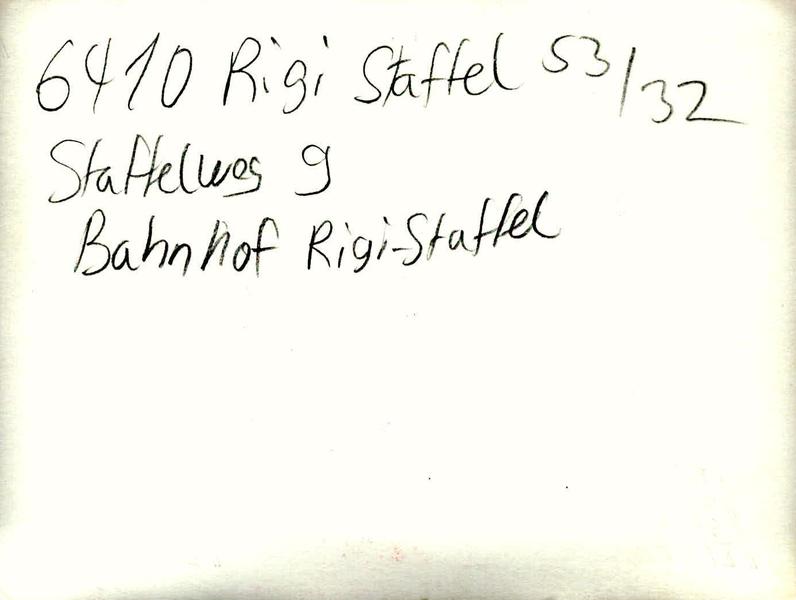 6410 Rigi Staffel 53/32
Staffelweg 9
Bahnhof Rigi-Staffel